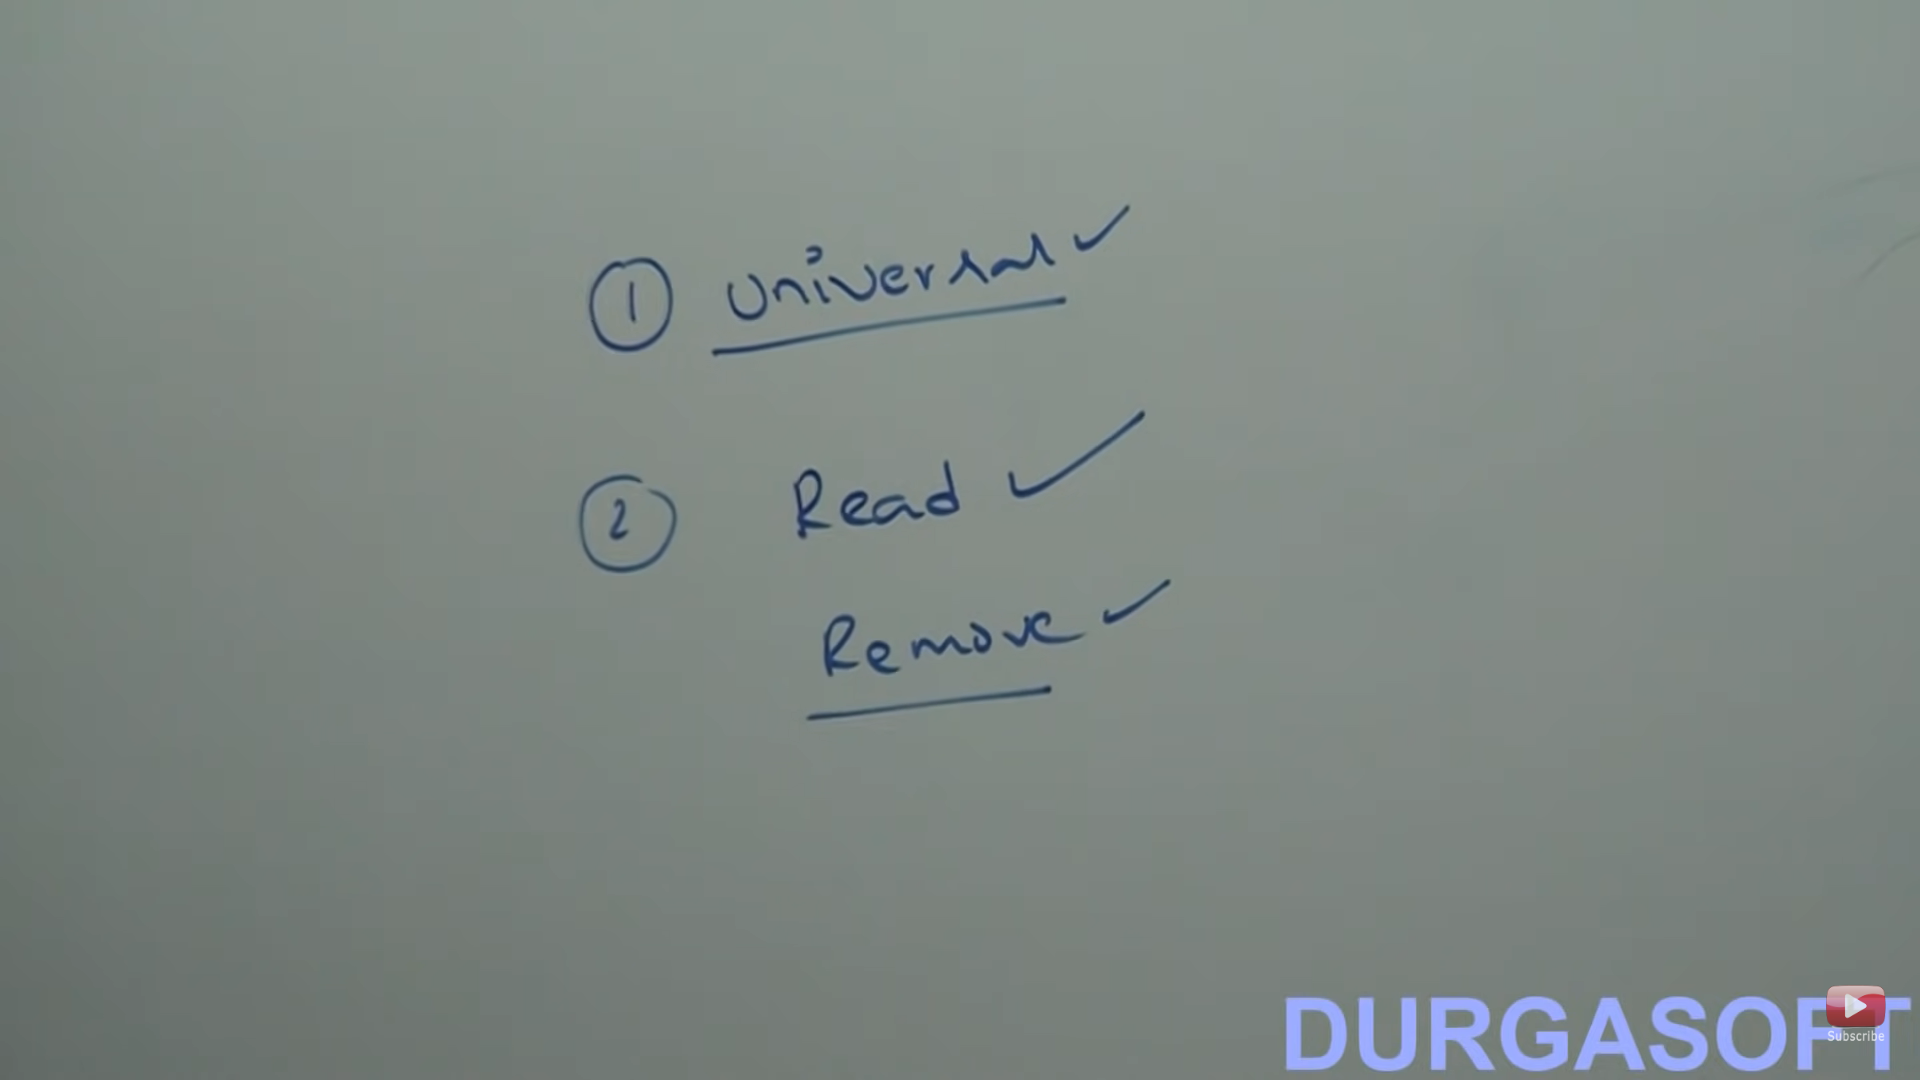 ① Universal ✓
② Read ✓
Remove ✓
DURGASOFT
Subscribe